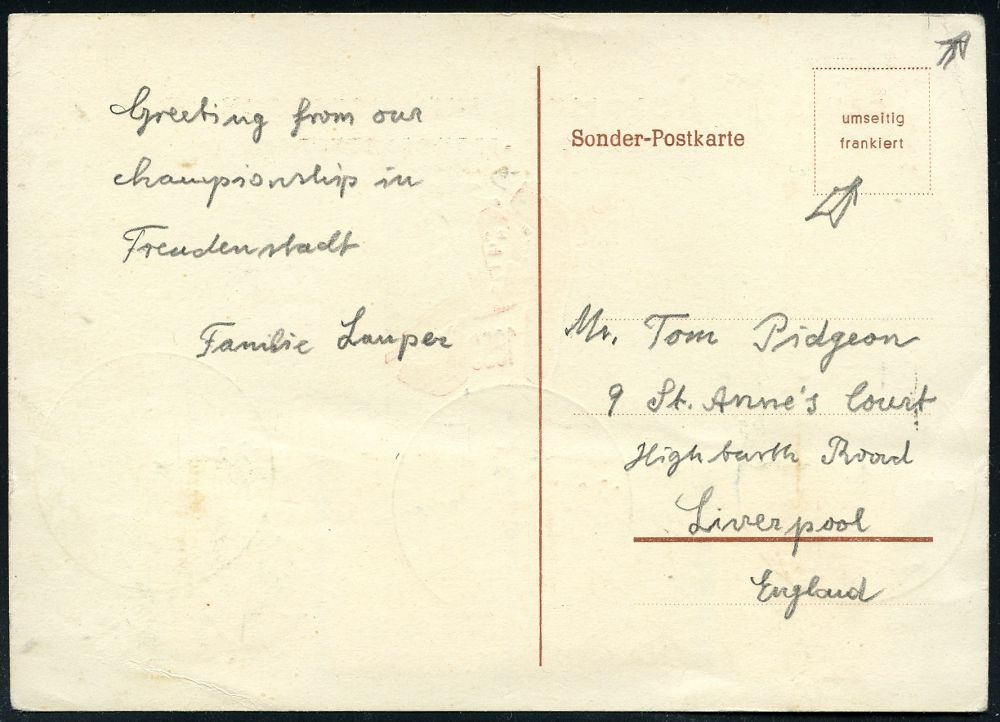 Greeting from our
championship in
Freudenstadt
Familie Lauper
Sonder-Postkarte
umseitig
frankiert
Mr. Tom Pidgeon
9 St. Anne's Court
Highbarth Road
Liverpool
England